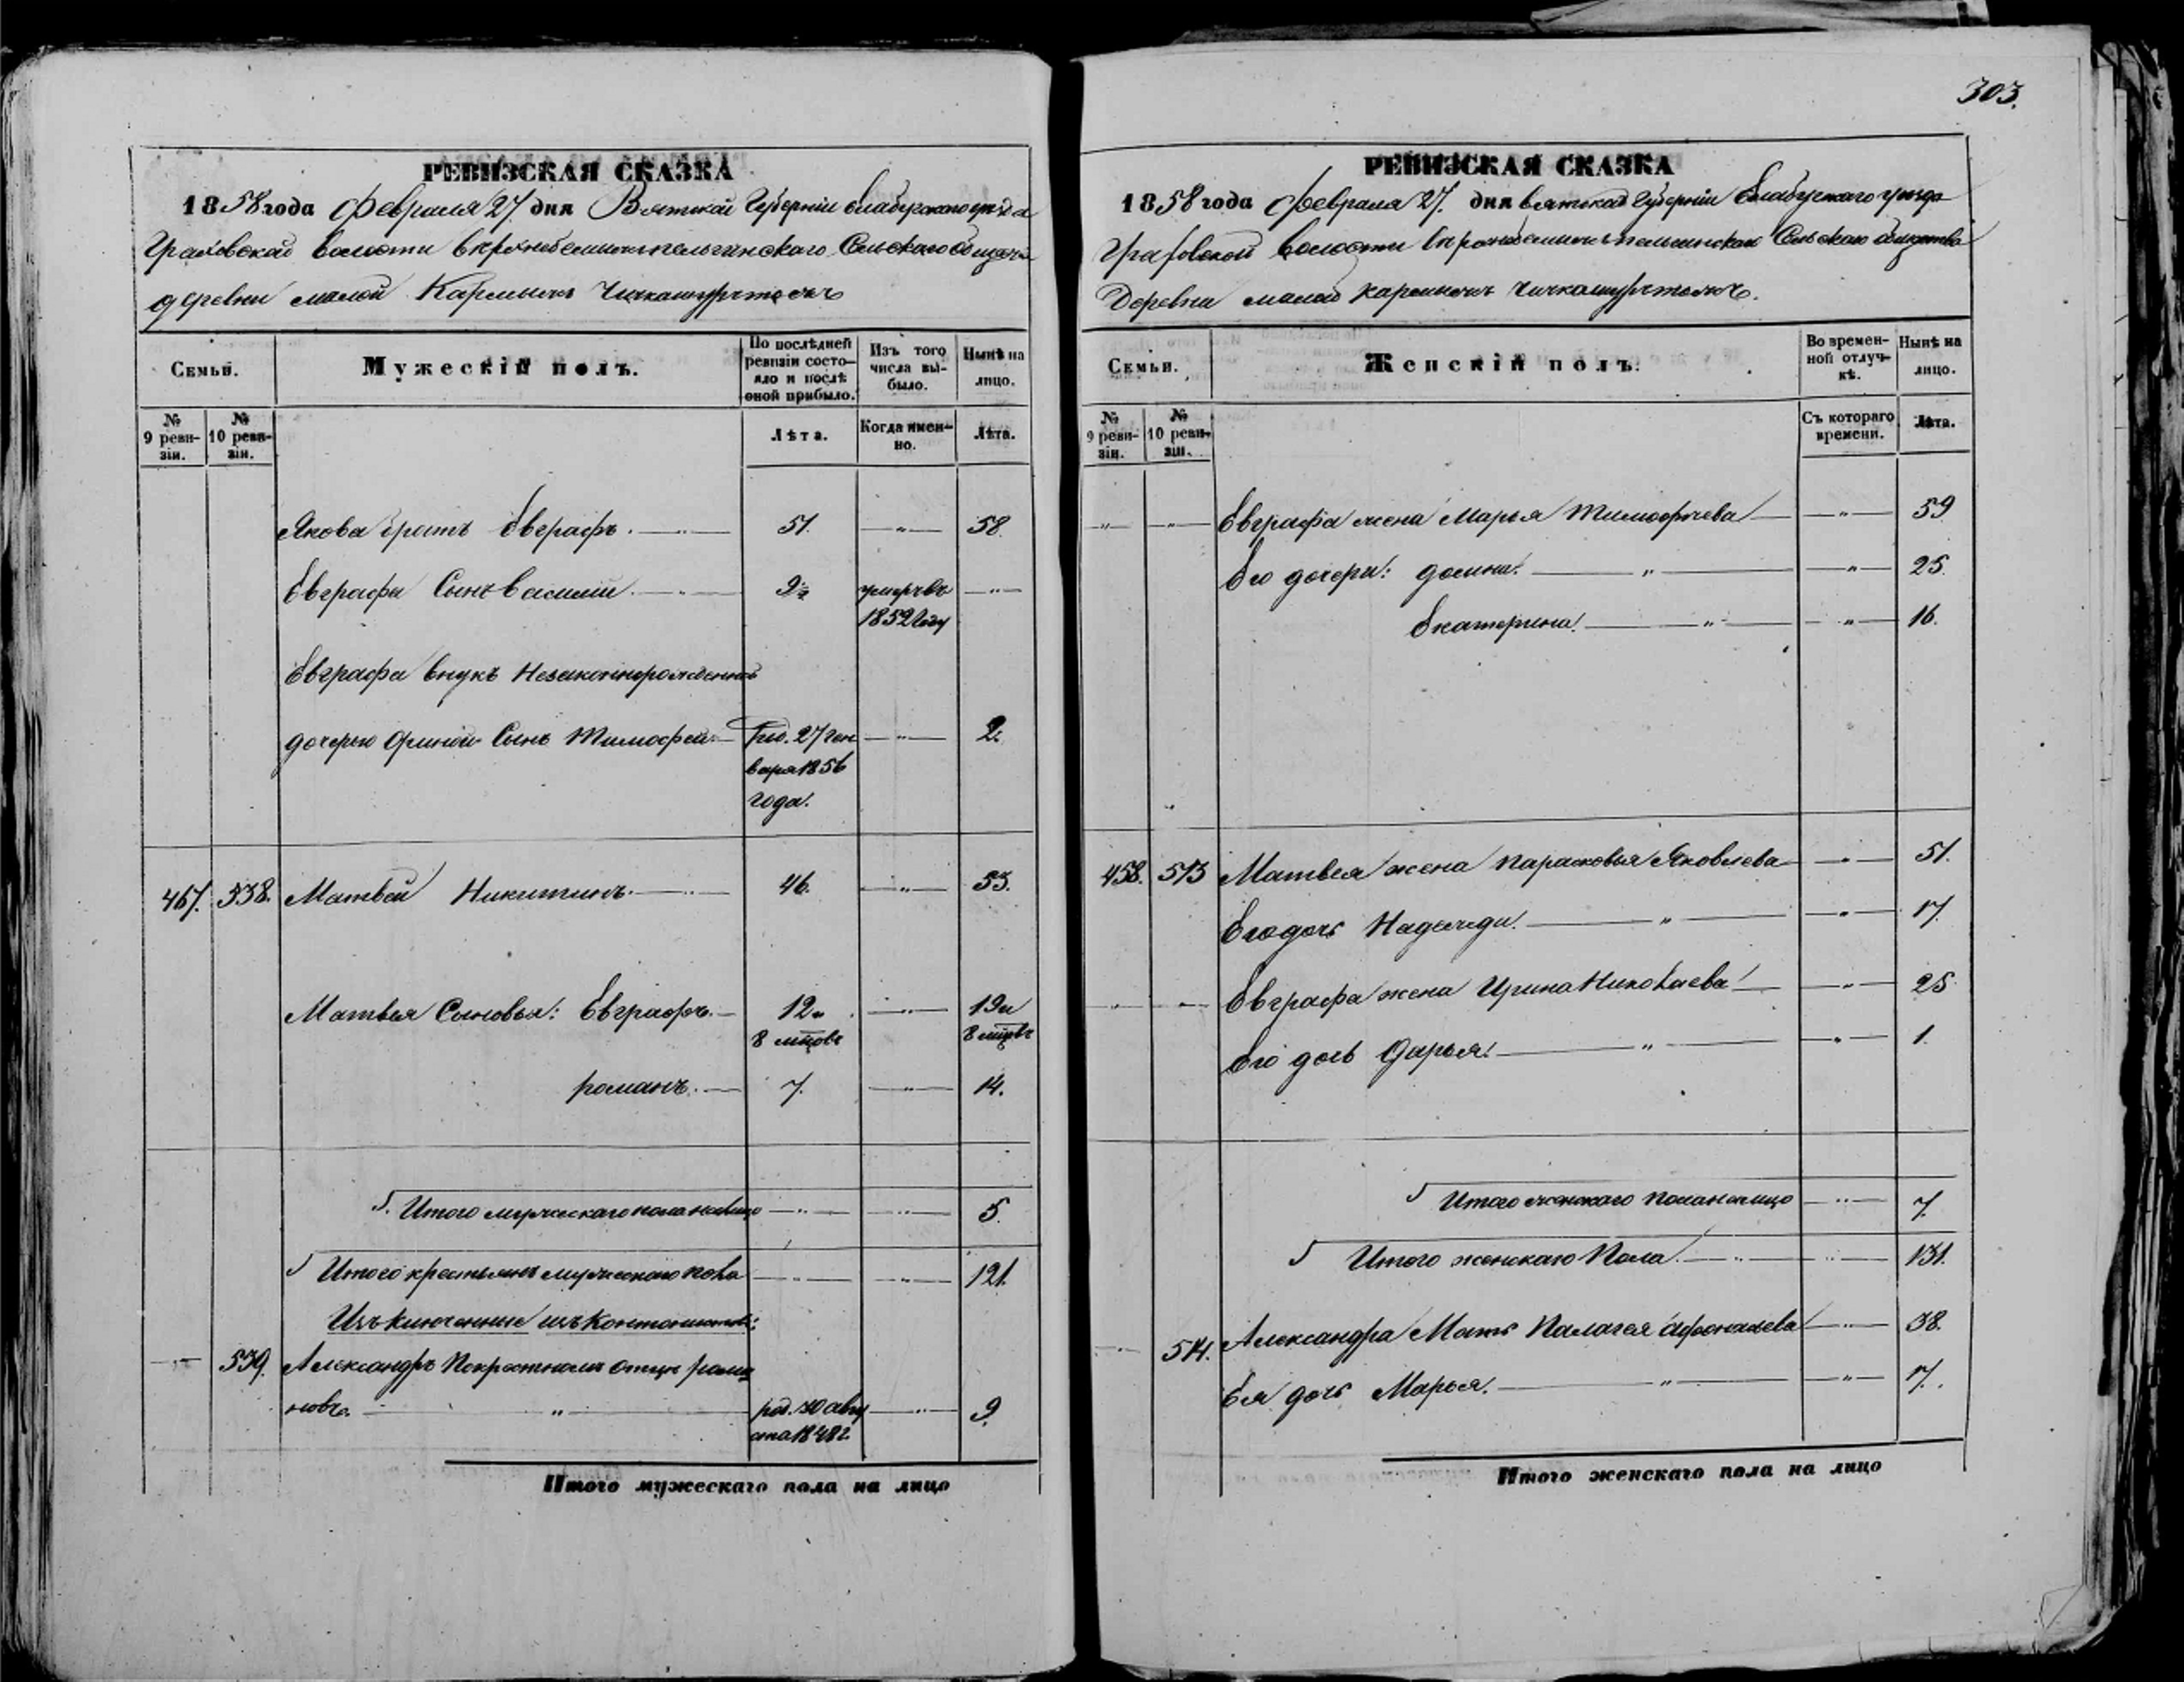 303.
РЕВИЗСКАЯ СКАЗКА
1858 года Февраля 27. дня Вятской Губерніи Елабугскаго уезда
Граховской волости Сельскаго общества
деревни малой Карлыгач
Семьи.
Мужескій полъ.
По послѣдней ревизіи состояло и послѣ оной прибыло.
Изъ того числа выбыло.
Нынѣ на лицо.
№ 9 ревизіи.
№ 10 ревизіи.
Лѣта.
Когда именно.
Лѣта.
Якова братъ Евграфъ. 51. „ 58.
Евграфа Сынъ Василій. умеръ въ „
1852 году
Евграфа внукъ Незаконнорожденной
дочерью Сынъ Тимофей Род. 27 Ген „ 2.
варя 1856
года.
467. 538. Матвей Никитинъ. „ 46. „ 53.
Матвея Сыновья: Евграфъ. 12 и „ 19 и
8 мцовъ 8 мцовъ
романъ. 7. „ 14.
Итого мужескаго пола налицо „ „ 5.
Итого крестьянъ мужескаго пола „ „ 121.
Изъ кантонистовъ:
„ 539. Александръ Покрестномъ отцѣ рома
новъ. „ род. 30 авгу „ 9.
ста 1848 г.
Итого мужескаго пола на лицо
РЕВИЗСКАЯ СКАЗКА
1858 года февраля 27. дня вятской Губерніи Елабугскаго уезда
Граховской волости Сельскаго общества
Деревни малой
Семьи.
Женскій полъ.
Во временной отлучкѣ.
Нынѣ на лицо.
№ 9 ревизіи.
№ 10 ревизіи.
Съ котораго времени.
Лѣта.
„ „ Евграфа жена Марья Тимофеева „ 59
Его дочери: „ „ 25.
Екатерина. „ „ 16.
458. 513 Матвея жена Парасковья Яковлева „ 51.
Его дочь Надежда. „ „ 17.
„ „ Евграфа жена Ирина Николаева „ 25.
Его дочь Дарья. „ „ 1.
Итого женскаго пола налицо „ 7.
Итого женскаго Пола. „ „ 131.
„ 514. Александра Мать Палагея „ 38.
Ея дочь Марья. „ „ 17.
Итого женскаго пола на лицо